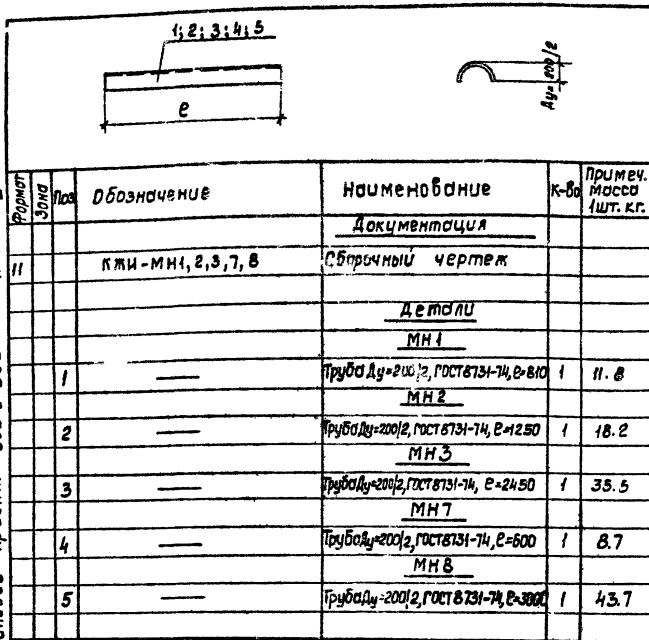 1; 2; 3; 4; 5
Ду=200/2
ℓ
Формат Зона Поз Обозначение Наименование К-во Примеч. масса 1шт. кг.
Документация
11 КЖИ-МН1, 2, 3, 7, 8 Сборочный чертеж
Детали
МН1
1 — Труба Ду=200/2, ГОСТ 8731-74, ℓ=810 1 11.8
МН2
2 — Труба Ду=200/2, ГОСТ 8731-74, ℓ=1250 1 18.2
МН3
3 — Труба Ду=200/2, ГОСТ 8731-74, ℓ=2450 1 35.5
МН7
4 — Труба Ду=200/2, ГОСТ 8731-74, ℓ=600 1 8.7
МН8
5 — Труба Ду=200/2, ГОСТ 8731-74, ℓ=3000 1 43.7